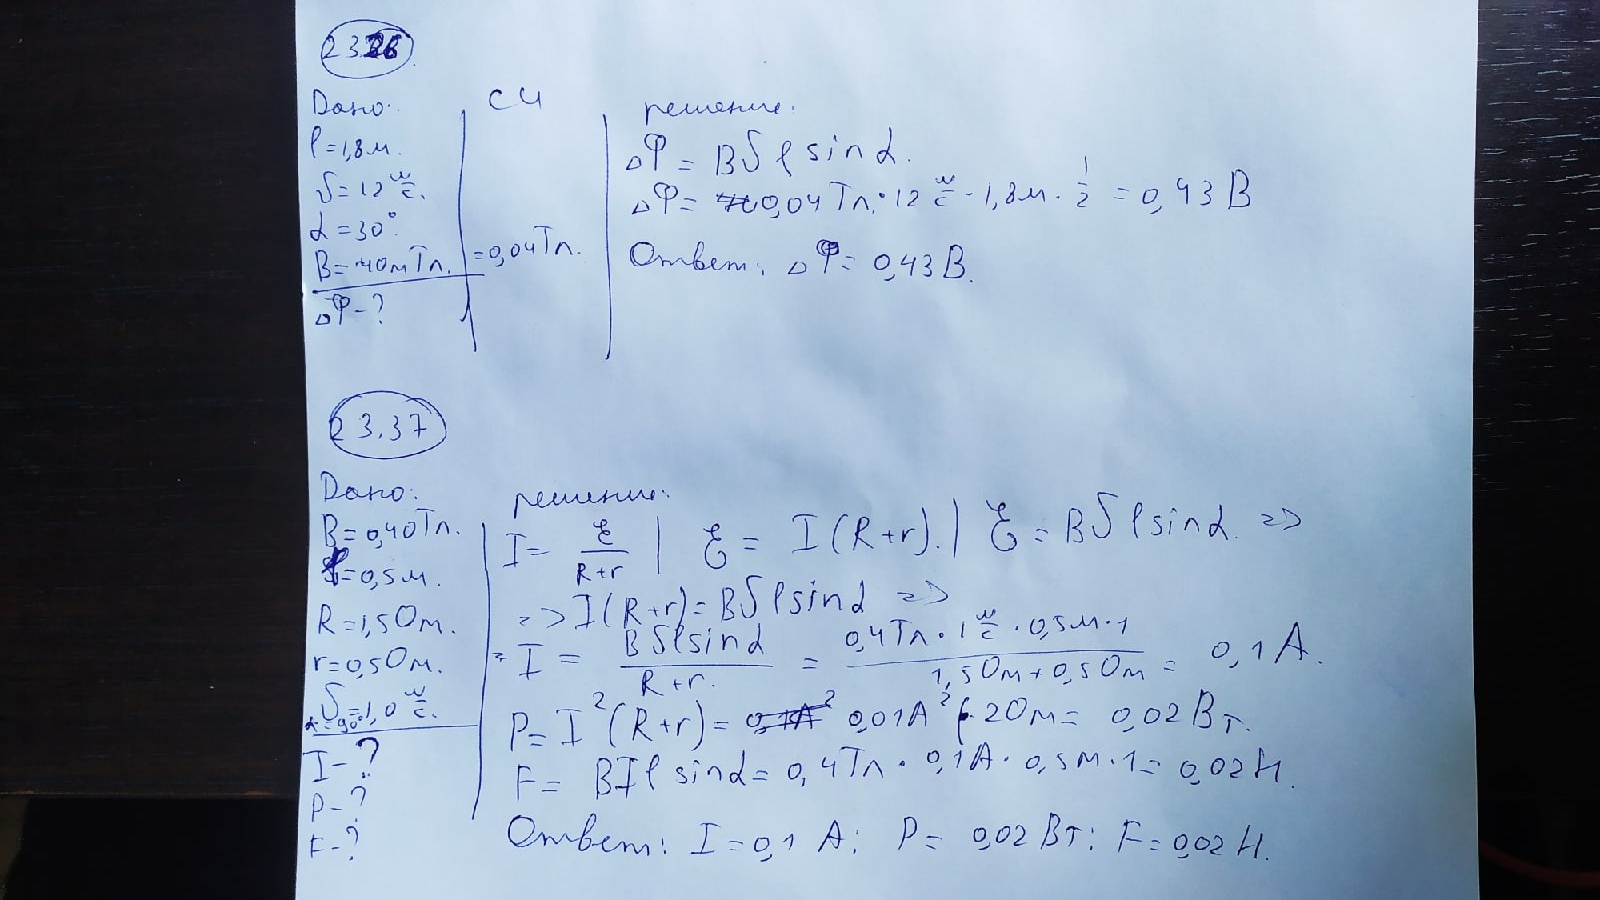 23.26
Дано:
l = 1,8 м.
υ = 12 м/с.
α = 30°.
B = 40 мТл.
Δφ - ?
СИ
= 0,04 Тл.
решение:
Δφ = Bυl sinα.
Δφ = 0,04 Тл · 12 м/с · 1,8 м · 1/2 = 0,43 В
Ответ: Δφ = 0,43 В.
23.37
Дано:
B = 0,40 Тл.
l = 0,5 м.
R = 1,5 Ом.
r = 0,5 Ом.
υ = 1,0 м/с.
α = 90°
I - ?
P - ?
F - ?
решение:
I = ℰ/(R+r) | ℰ = I(R+r). | ℰ = Bυl sinα. =>
=> I(R+r) = Bυl sinα =>
= I = Bυl sinα/(R+r). = 0,4 Тл · 1 м/с · 0,5 м · 1/(1,5 Ом + 0,5 Ом) = 0,1 А.
P = I²(R+r) = 0,01 А² · 2 Ом = 0,02 Вт.
F = BIl sinα = 0,4 Тл · 0,1 А · 0,5 м · 1 = 0,02 Н.
Ответ: I = 0,1 А; P = 0,02 Вт; F = 0,02 Н.